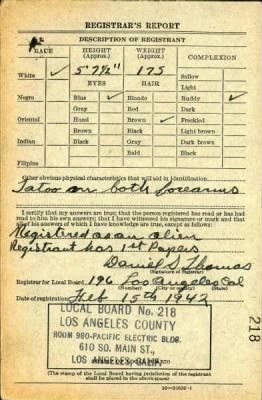 REGISTRAR'S REPORT
DESCRIPTION OF REGISTRANT
RACE HEIGHT (Approx.) WEIGHT (Approx.) COMPLEXION
White ✓ 5' 7½" 175 Sallow
EYES HAIR Light
Negro Blue ✓ Blonde Ruddy ✓
Gray Red Dark
Oriental Hazel Brown ✓ Freckled
Brown Black Light brown
Indian Black Gray Dark brown
Bald Black
Filipino
Other obvious physical characteristics that will aid in identification
Tatoo on both forearms
I certify that my answers are true; that the person registered has read or has had
read to him his own answers; that I have witnessed his signature or mark and that
all of his answers of which I have knowledge are true, except as follows:
Registered as an alien
Registrant has 1st Papers
Daniel S Thomas
(Signature of registrar)
Registrar for Local Board 196 Los Angeles Cal
(Number) (City or county) (State)
Date of registration Feb 15th 1942
LOCAL BOARD No. 218
LOS ANGELES COUNTY
ROOM 980-PACIFIC ELECTRIC BLDG.
610 SO. MAIN ST.,
LOS ANGELES, CALIF.
(The stamp of the Local Board having jurisdiction of the registrant
shall be placed in the above space)
218